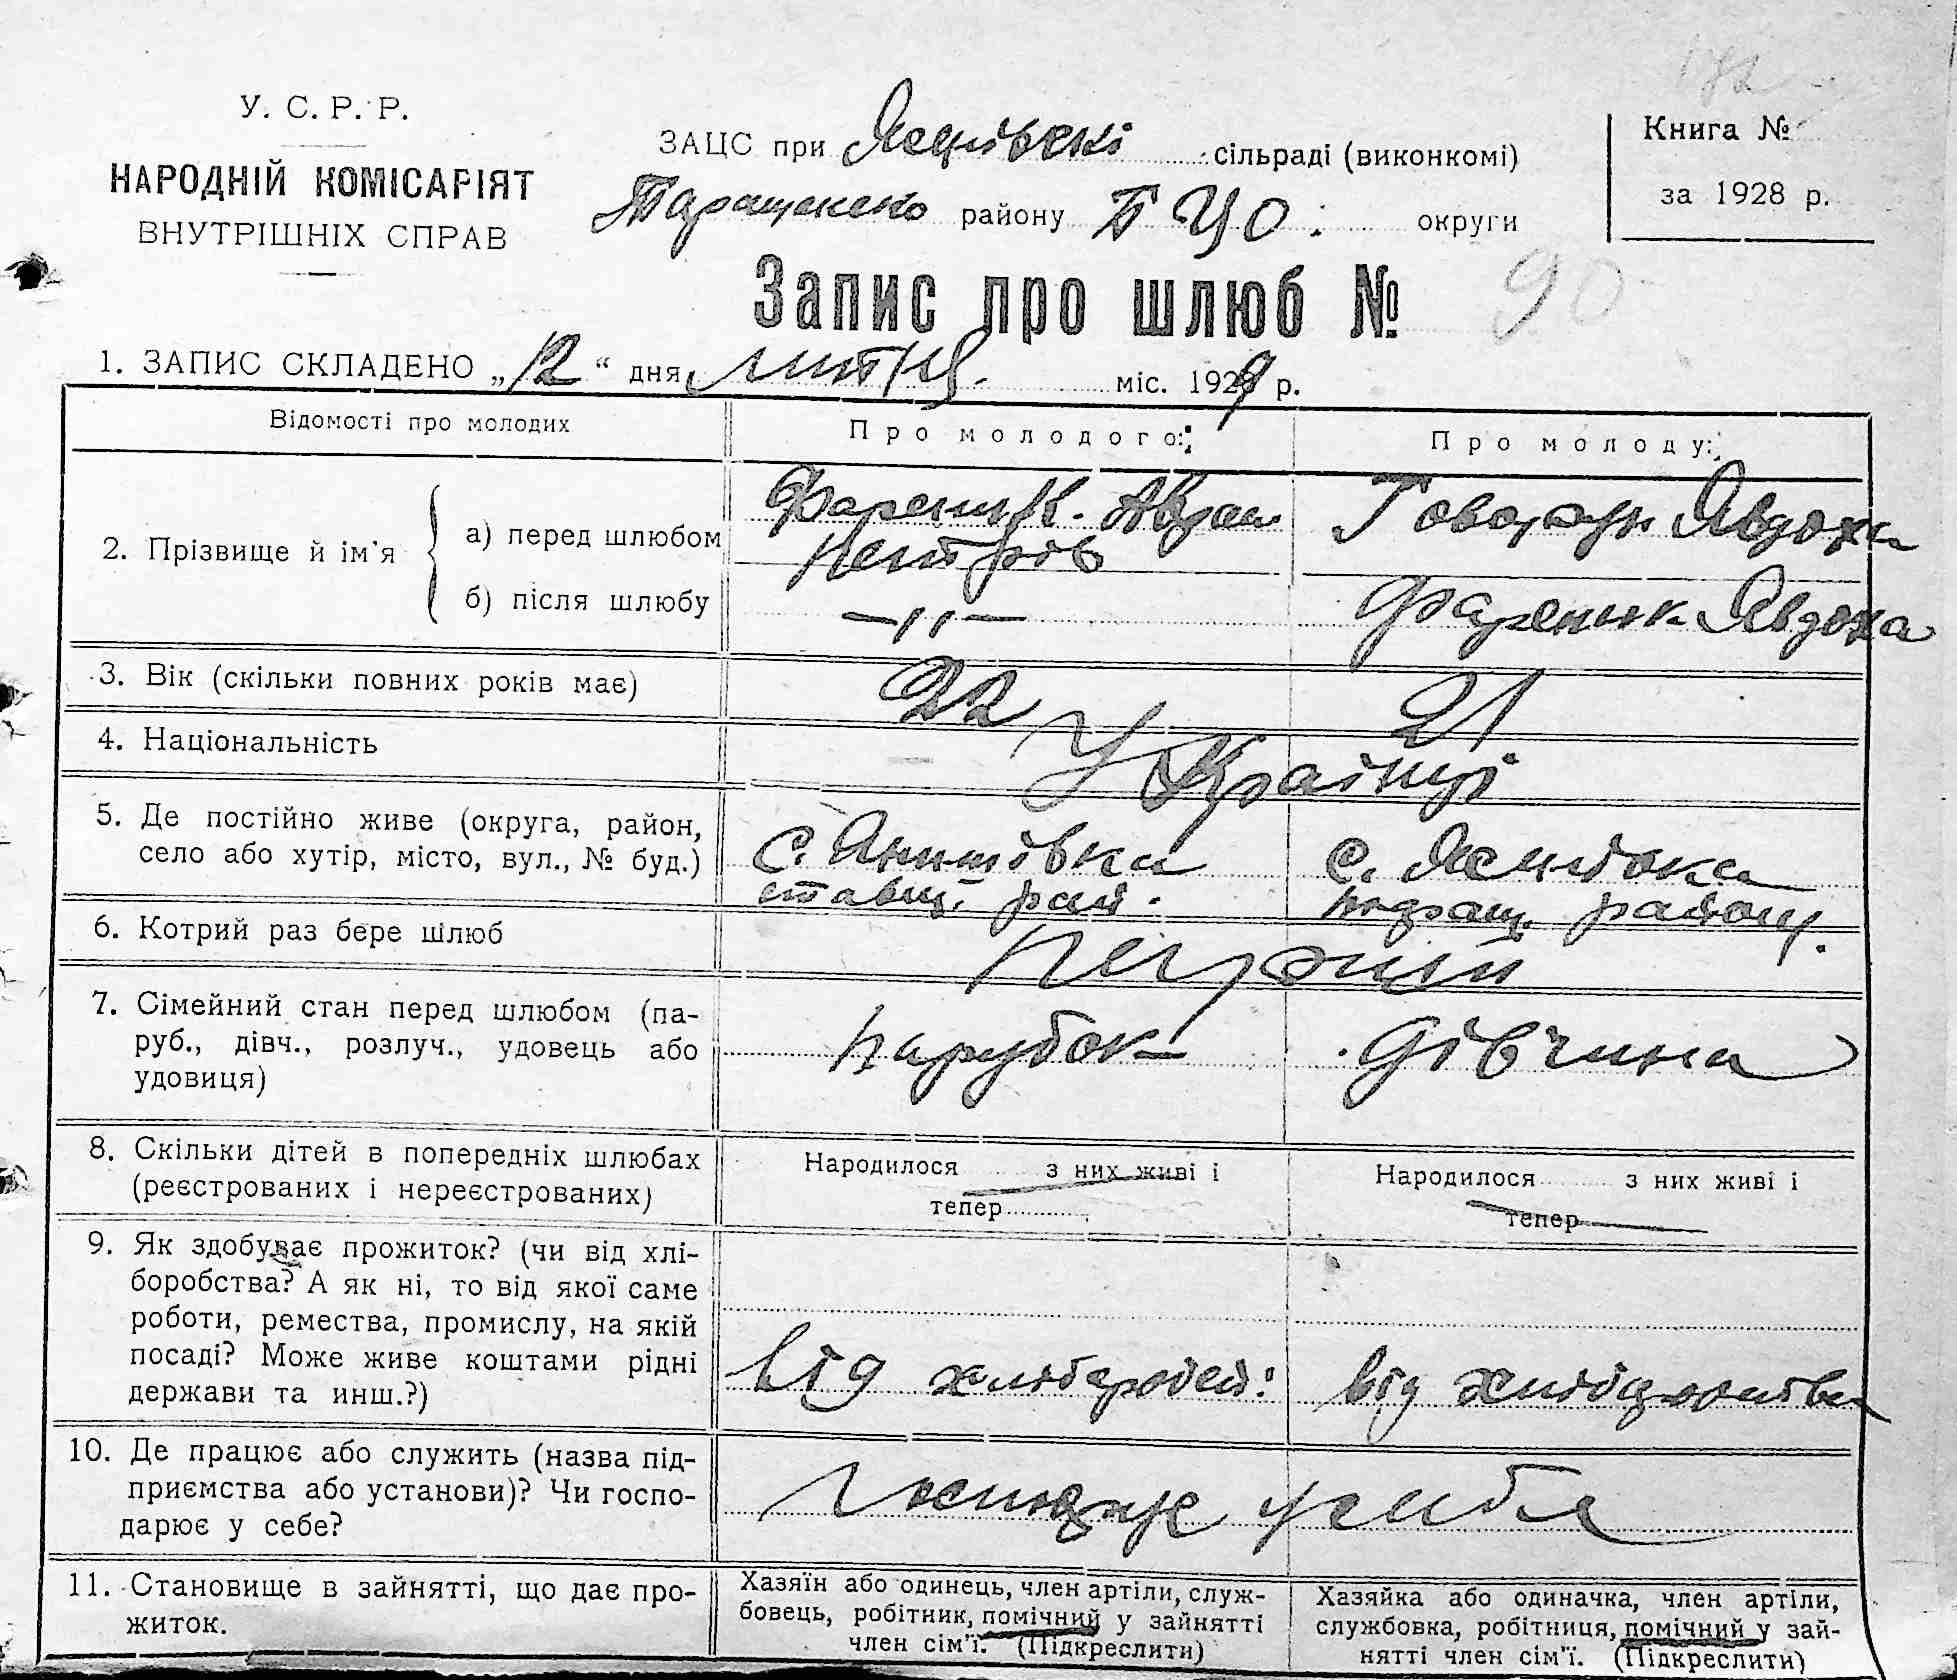 У. С. Р. Р.
НАРОДНІЙ КОМІСАРІЯТ
ВНУТРІШНІХ СПРАВ
ЗАЦС при Ясенівскі сільраді (виконкомі)
Таращенсько району БЦО. округи
Книга №
за 1928 р.
Запис про шлюб № 90
1. ЗАПИС СКЛАДЕНО „12“ дня лютця. міс. 1929 р.
Відомості про молодих
Про молодого:
Про молоду:
2. Прізвище й ім'я
а) перед шлюбом
Фареник. Аврам
Петрів
Говорун Явдоха
б) після шлюбу
—〃—
Фареник Явдоха
3. Вік (скільки повних років має)
22
21
4. Національність
Українці
5. Де постійно живе (округа, район,
село або хутір, місто, вул., № буд.)
с. Янишівка
ставищ. рай.
с. Ясенівка
таращ. району.
6. Котрий раз бере шлюб
Первий
7. Сімейний стан перед шлюбом (па-
руб., дівч., розлуч., удовець або
удовиця)
парубок
дівчина
8. Скільки дітей в попередніх шлюбах
(реєстрованих і нереєстрованих)
Народилося з них живі і
тепер
Народилося з них живі і
тепер
9. Як здобуває прожиток? (чи від хлі-
боробства? А як ні, то від якої саме
роботи, ремества, промислу, на якій
посаді? Може живе коштами рідні
держави та инш.?)
від
від
10. Де працює або служить (назва під-
приємства або установи)? Чи госпо-
дарює у себе?
у себе
11. Становище в зайнятті, що дає про-
житок.
Хазяїн або одинець, член артіли, служ-
бовець, робітник, помічний у зайнятті
член сім'ї. (Підкреслити)
Хазяйка або одиначка, член артіли,
службовка, робітниця, помічний у зай-
нятті член сім'ї. (Підкреслити)